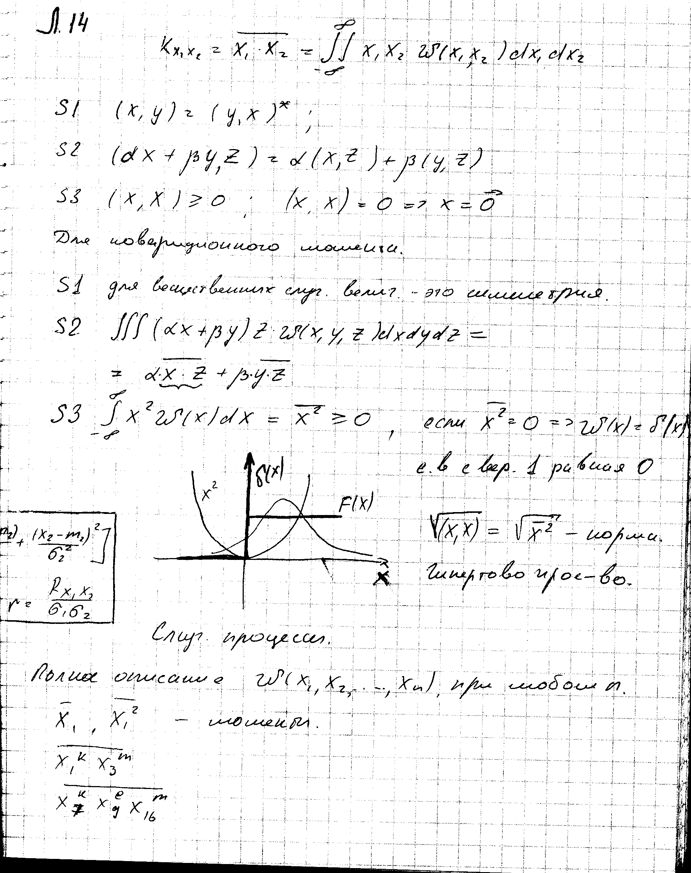 Л.14
K_{x₁x₂} = \overline{x₁·x₂} = ∫∫_{-∞}^{∞} x₁x₂ W(x₁,x₂)dx₁dx₂
S1 (x,y) = (y,x)*;
S2 (αx + βy,z) = α(x,z) + β(y,z)
S3 (x,x) ≥ 0; (x,x) = 0 => x = \vec{0}
Для ковариционного момента.
S1 для вещественных случ. велич. - это симметрия.
S2 ∫∫∫(αx+βy)z·W(x,y,z)dxdydz =
= α·\overline{x·z} + β·\overline{y·z}
S3 ∫_{-∞}^{∞} x²W(x)dx = \overline{x²} ≥ 0, если \overline{x²} = 0 => W(x) = δ(x)
с.в с вер. 1 равная 0
x²
δ(x)
F(x)
x
√(x,x) = √\overline{x²} - норма.
Гильбертово прос-во.
+ (x₂-m₂)²/σ₂²]
r = R_{x₁x₂}/σ₁σ₂
Случ. процессы.
Полное описание W(x₁,x₂,...,xₙ), при любом n.
\overline{x}₁, \overline{x₁²} - моменты.
\overline{x₁^k x₃^m}
\overline{x₇^k x₉^e x₁₆^m}